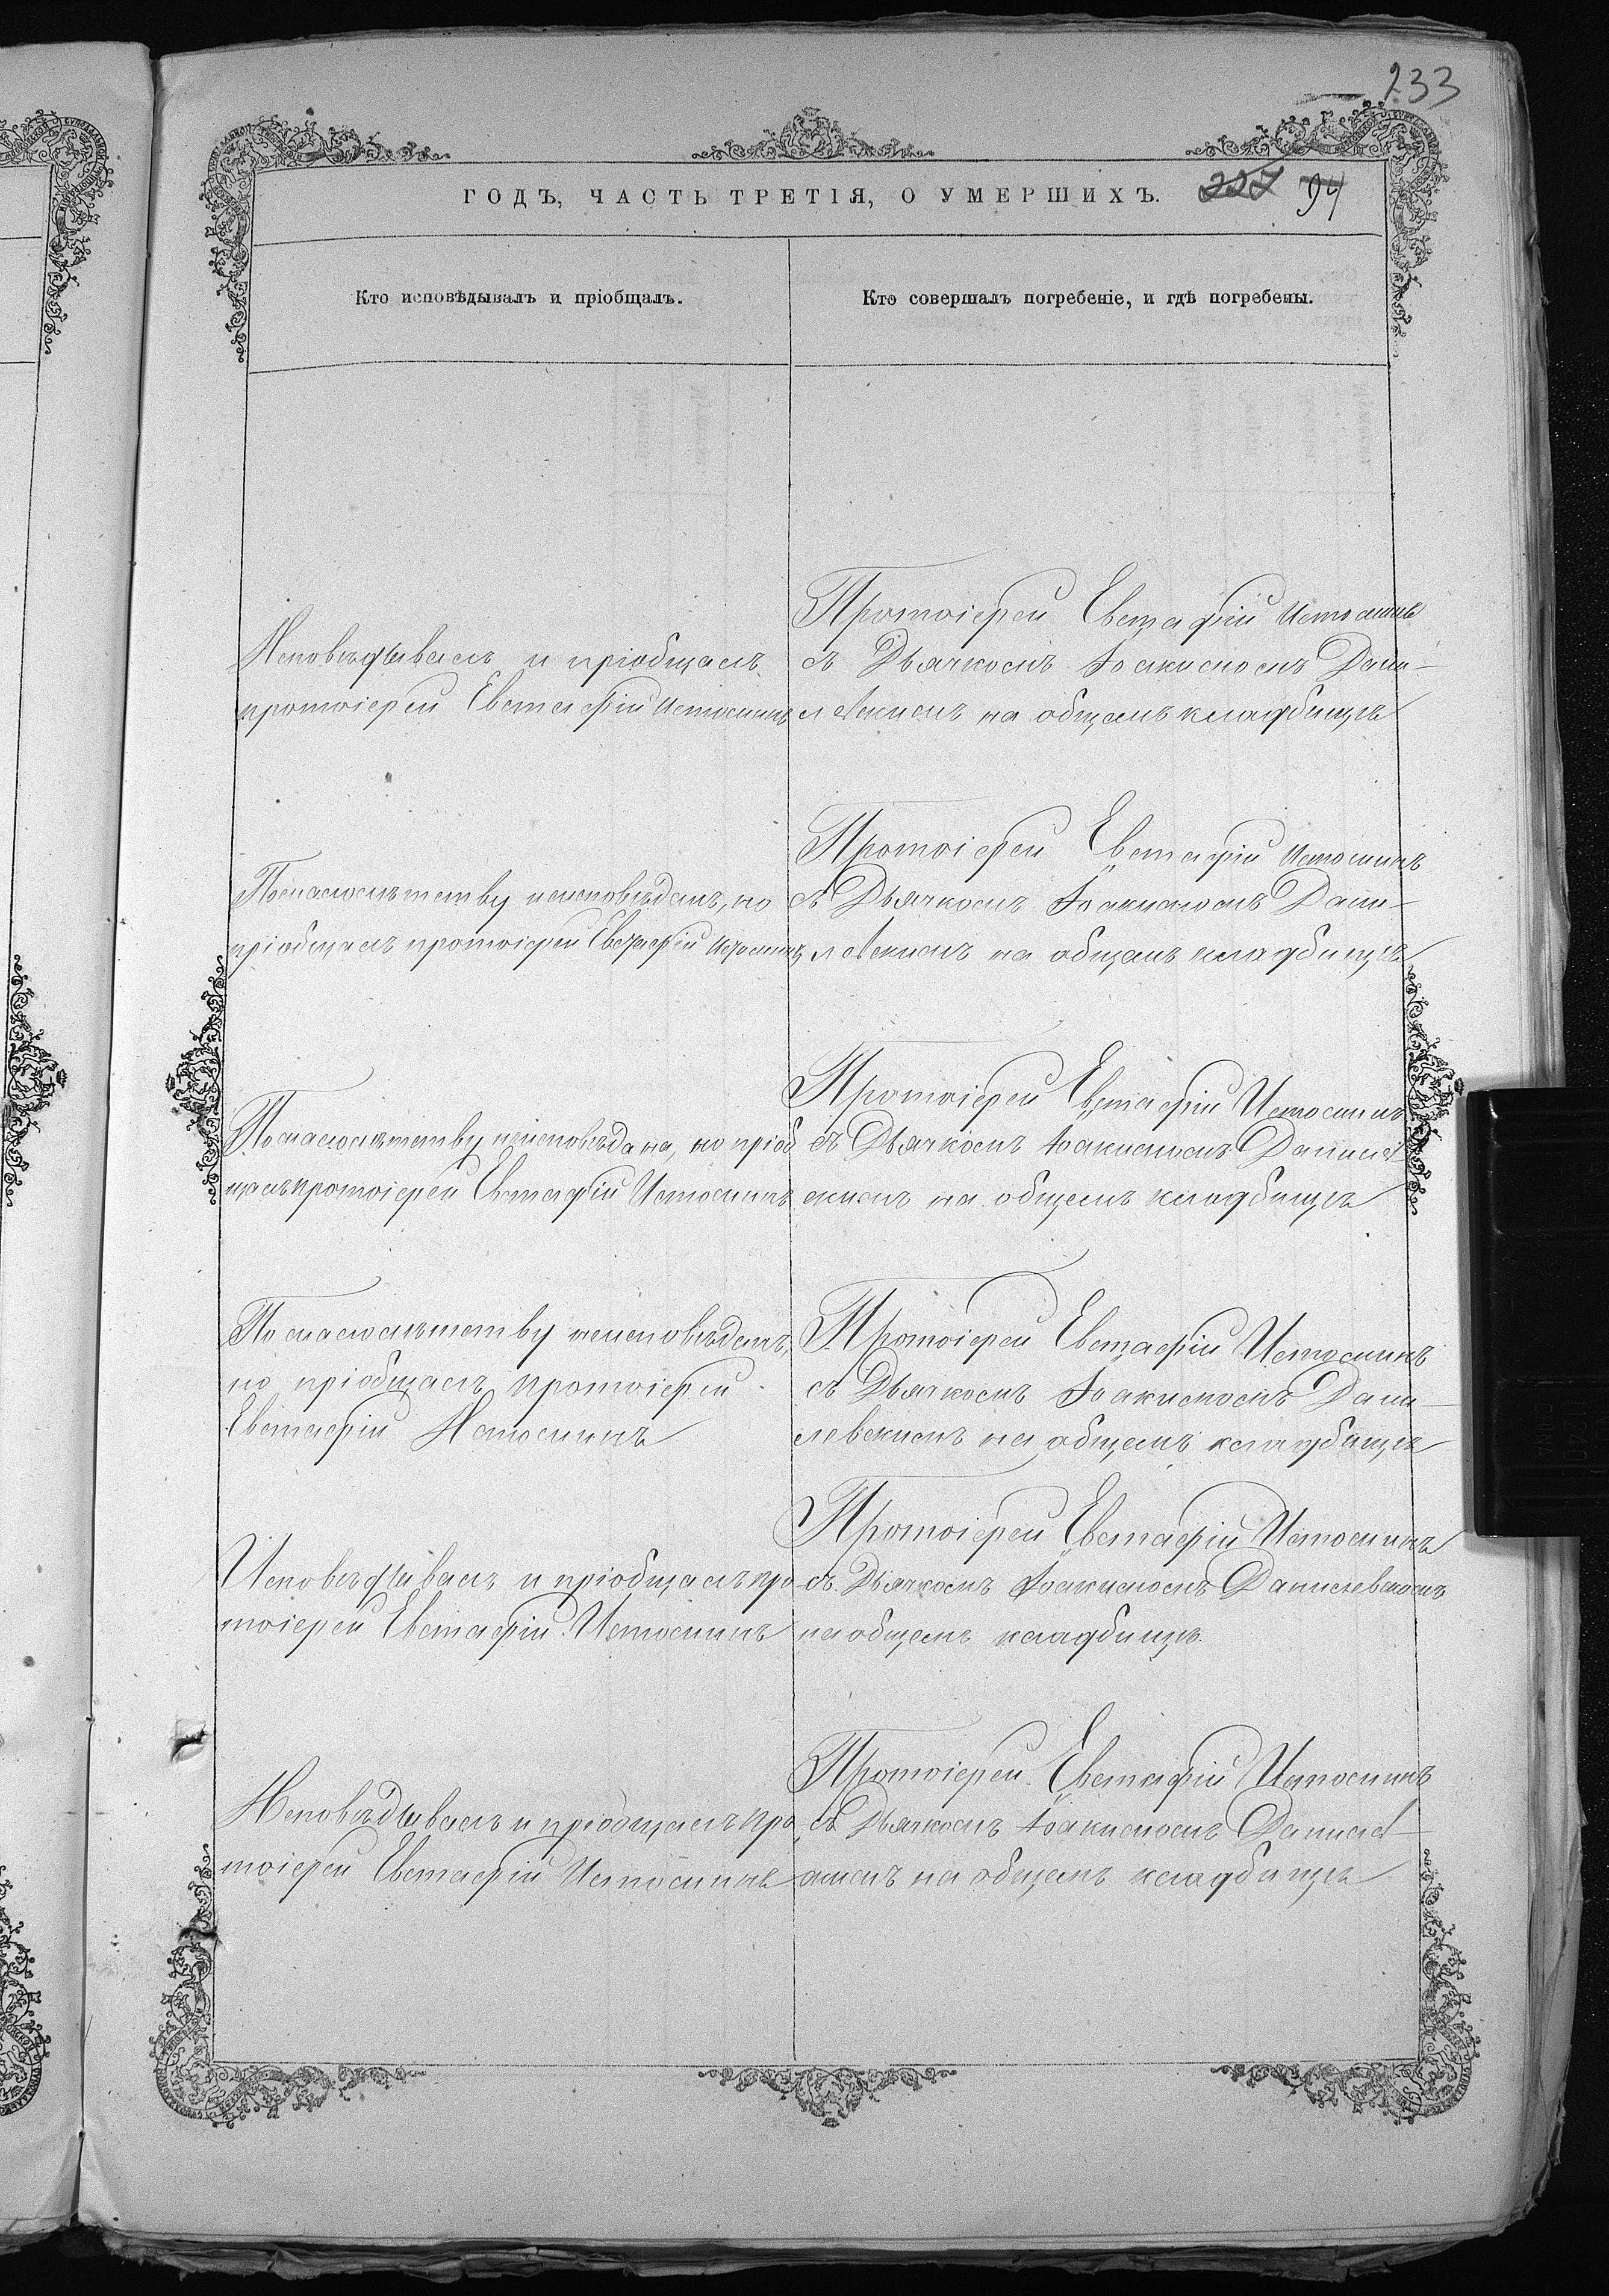 233
227 94
ГОДЪ, ЧАСТЬ ТРЕТІЯ, О УМЕРШИХЪ.
Кто исповѣдывалъ и пріобщалъ.
Кто совершалъ погребеніе, и гдѣ погребены.
Исповѣдывалъ и пріобщалъ
протоіерей Евстафій Истоминъ
Протоіерей Евстафій Истоминъ
съ Дьячкомъ Іоакимомъ Дани-
левскимъ на общемъ кладбищѣ
По малолѣтству неисповѣданъ, но
пріобщалъ протоіерей Евстафій Истоминъ
Протоіерей Евстафій Истоминъ
съ Дьячкомъ Іоакимомъ Дани-
левскимъ на общемъ кладбищѣ
По малолѣтству неисповѣдана, но пріоб
щалъ протоіерей Евстафій Истоминъ
Протоіерей Евстафій Истоминъ
съ Дьячкомъ Іоакимомъ Данилев
скимъ на общемъ кладбищѣ
По малолѣтству неисповѣданъ,
но пріобщалъ протоіерей
Евстафій Истоминъ
Протоіерей Евстафій Истоминъ
съ Дьячкомъ Іоакимомъ Дани-
левскимъ на общемъ кладбищѣ
Исповѣдывалъ и пріобщалъ про
тоіерей Евстафій Истоминъ
Протоіерей Евстафій Истоминъ
съ Дьячкомъ Іоакимомъ Данилевскимъ
на общемъ кладбищѣ.
Исповѣдывалъ и пріобщалъ про
тоіерей Евстафій Истоминъ
Протоіерей Евстафій Истоминъ
съ Дьячкомъ Іоакимомъ Данилев
скимъ на общемъ кладбищѣ